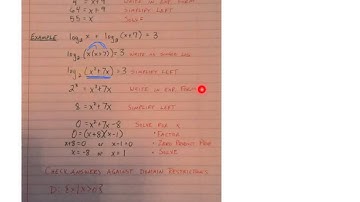 64 = x+9 SIMPLIFY LEFT
55 = x SOLVE
EXAMPLE log₂ x + log₂ (x+7) = 3
log₂ (x(x+7)) = 3 WRITE AS SINGLE LOG
log₂ (x²+7x) = 3 SIMPLIFY LEFT
2³ = x²+7x WRITE IN EXP. FORM
8 = x²+7x SIMPLIFY LEFT
0 = x²+7x-8 SOLVE FOR x
0 = (x+8)(x-1) • FACTOR
x+8=0 or x-1=0 • ZERO PRODUCT PROP
x = -8 or x = 1 • SOLVE
CHECK ANSWERS AGAINST DOMAIN RESTRICTIONS
D: {x|x>0}